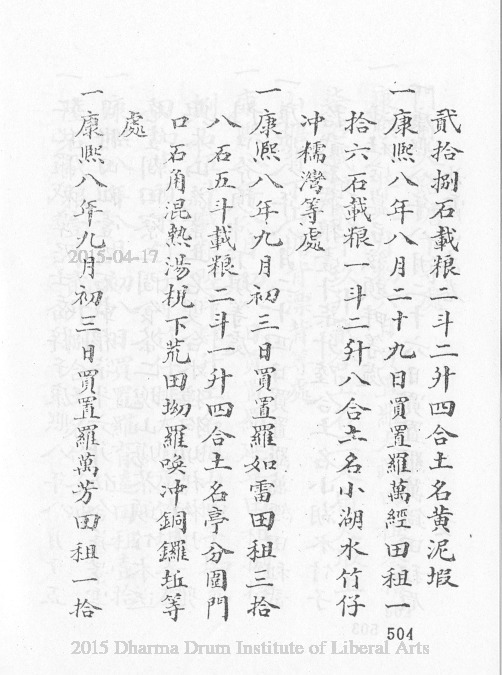 貳拾捌石載粮二斗二升四合土名黄泥塅
一康熈八年八月二十九日買置羅萬經田租一
拾六石載粮一斗二升八合土名小湖水竹仔
冲檽灣等處
一康熈八年九月初三日買置羅如雷田租三拾
八石五斗載粮二斗一升四合土名亭分圖門
口石角混熱湯梘下荒田坳羅喚冲銅鑼坵等
處
一康熈八年九月初三日買置羅萬芳田租一拾
504
2015-04-17
2015 Dharma Drum Institute of Liberal Arts